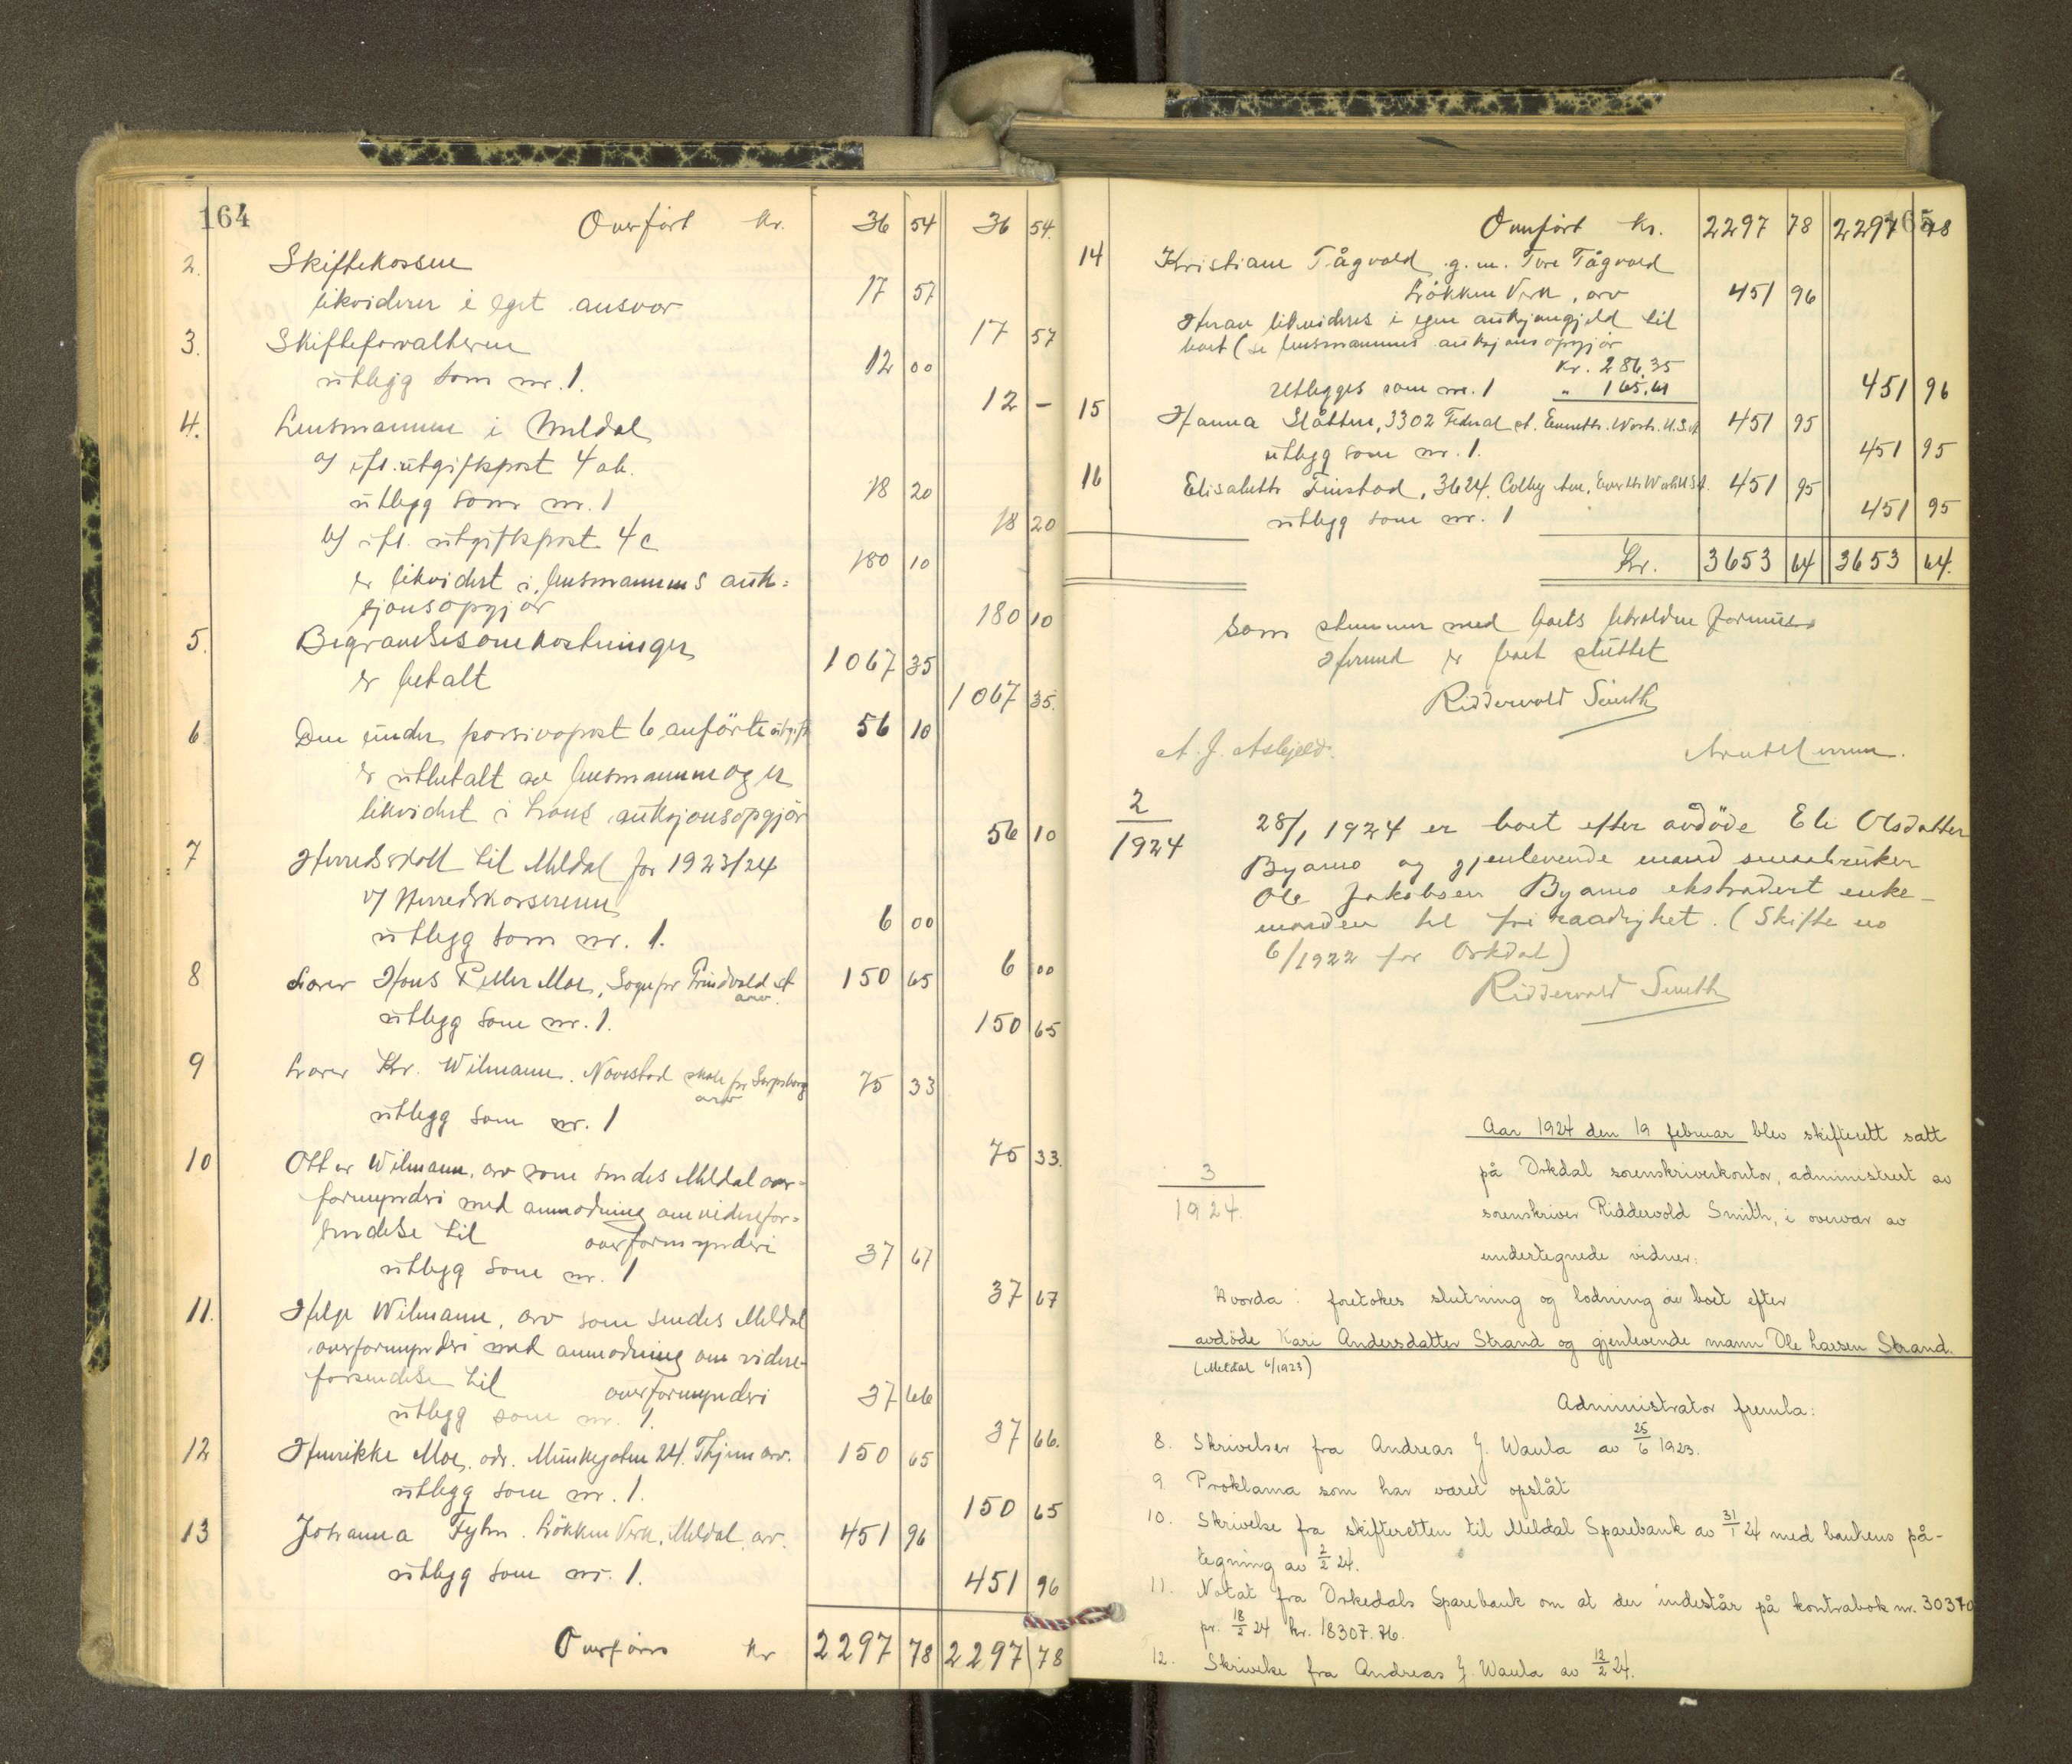 164
Overført kr. 36 54 36 54.
2. Skiftekassen
likviderer i eget ansvar 17 57
17 57
3. Skifteforvalteren
utlegg som nr. 1. 12 00
12 –
4. Lensmannen i Meldal
a) ifl. utgiftspost 4 ab.
utlegg som nr. 1 18 20
18 20
b) ifl. utgiftspost 4 c 180 10
er likvidert i lensmannens auk=
sjonsopgjør 180 10
5. Begravelsesomkostninger 1067 35
er betalt
1067 35.
6 Den under passivapost 6 anførte utgift 56 10
er utbetalt av lensmannen og er
likvidert i hans auksjonsopgjør
56 10
7 Herredsskatt til Meldal for 1923/24
v/ Herredskassereren 6 00
utlegg som nr. 1.
6 00
8 Lærer Hans Petter Moe, Sogn pr Grindvold st 150 65
arv.
utlegg som nr. 1. 150 65
9 Lærer Kr. Wilmann. Navestad skole pr Sarpsborg 75 33
arv
utlegg som nr. 1
75 33.
10 Otter Wilmann, arv som sendes Meldal over=
formynderi med anmodning om videre for=
sendelse til overformynderi 37 67
utlegg som nr. 1
37 67
11. Helge Wilmann, arv som sendes Meldal
overformynderi med anmodning om videre-
forsendelse til overformynderi 37 66
utlegg som nr. 1.
37 66.
12 Henrikke Moe, adr. Munkegaten 24. Thjem arv. 150 65
utlegg som nr. 1.
150 65
13 Johanna Fylm. Løkken Verk, Meldal, arv. 451 96
utlegg som nr. 1. 451 96
Overføres kr 2297 78 2297 78
165
Overført kr. 2297 78 2297 78
14 Kristiane Tågvold g. m. Tore Tågvold
Løkken Verk, arv 451 96
Herav likvideres i egen auksjonsgjeld til
boet (se lensmannens auksjonsopgjør
kr. 286,35
Utlegges som nr. 1 " 165,61 451 96
15 Hanna Slåtten, 3302 Federal st. Wash. U.S.A 451 95
utlegg som nr. 1. 451 95
16 Elisabeth Finstad, 3624, Colby Ave, Everett Wash U.S.A. 451 95
utlegg som nr. 1 451 95
Kr. 3653 64 3653 64.
som stemmer med boets beholdne formue.
Hermed er boet sluttet
Ridderwold Smith
A. J. Asbjeld.
2
1924
28/1 1924 er boet efter avdøde Eli Olsdatter
Byamo og gjenlevende mand smaabruker
Ole Jakobsen Byamo ekstradert enke-
manden til fri raadighet. (Skifte no
6/1922 for Orkdal)
Ridderwold Smith
Aar 1924 den 19 februar blev skifterett satt
3
1924.
på Orkdal sorenskriverkontor, administrert av
sorenskriver Riddervold Smith, i overvær av
undertegnede vidner:
Hvorda: foretokes slutning og lodning av boet efter
avdøde Kari Andersdatter Strand og gjenlevende mann Ole Larsen Strand.
(Meldal 6/1923)
Administrator fremla:
8. Skrivelser fra Andreas J. Waula av 25/6 1923.
9 Proklama som har været opslåt
10. Skrivelse fra skifteretten til Meldal Sparebank av 31/1 24 med bankens på-
tegning av 2/2 24.
11. Notat fra Orkedals Sparebank om at der indestår på kontrabok nr. 30370
pr. 18/2 24 kr. 18307.76.
12. Skrivelse fra Andreas J. Waula av 12/2 24.